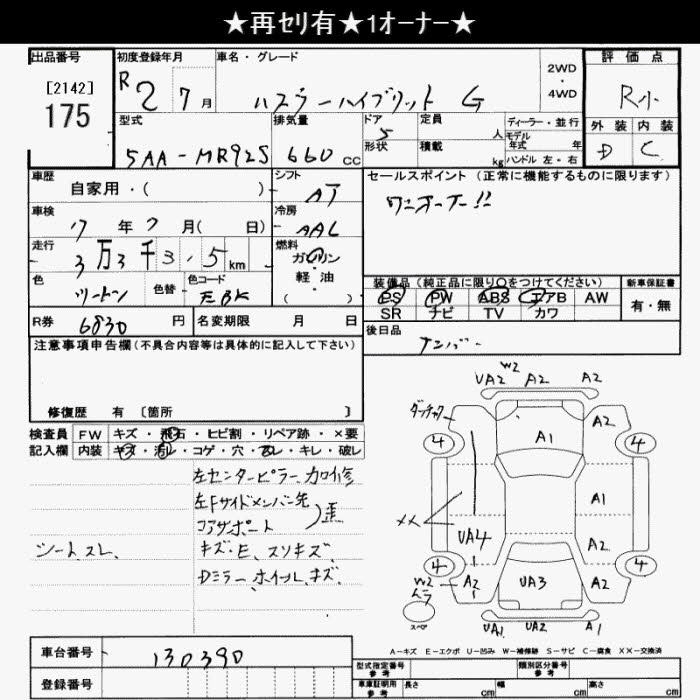 ★再セリ有★1オーナー★
出品番号
[2142]
175
初度登録年月
R2 7月
車名・グレード
ハスラーハイブリット G
2WD
・
4WD
評価点
R小
外装 内装
D C
型式
5AA-MR92S
排気量
660 cc
ドア
5
形状
定員
人
積載
kg
ディーラー・並行
モデル
年式 年
ハンドル 左・右
車歴
自家用・( )
シフト
AT
車検
17年7月( 日)
冷房
AAC
走行
3万3千3.5km
燃料
ガソリン
・
軽油
( )
色
ツートン
色替
色コード
EBK
R券
6830円
名変期限 月 日
セールスポイント(正常に機能するものに限ります)
ワンオーナー!!
装備品(純正品に限り〇をつけてください)
PS PW ABS エアB AW
SR ナビ TV カワ
新車保証書
有・無
後日品
ナンバー
注意事項申告欄(不具合内容等は具体的に記入して下さい)
修復歴 有 〔箇所 〕
検査員
記入欄
FW キズ・飛石・ヒビ割・リペア跡・×要
内装 キズ・汚レ・コゲ・穴・スレ・キレ・破レ
左センターピラー加修
左Fサイドメンバー先
コアサポート
)歪
シートスレ、
キズ・E、スソキズ、
Dミラー、ホイールキズ、
W2
UA2 A2 A2
A2
A1
4 4
A1
××
UA4
A2
4 4
W2
A2
UA3
A2
スペア
UA1 UA2 A1
A-キズ E-エクボ U-凹み W-補修跡 S-サビ C-腐食 XX-交換済
車台番号
130390
登録番号
型式指定番号
参考
類別区分番号
参考
車庫証明用
参考
長さ cm
幅 cm
高さ cm